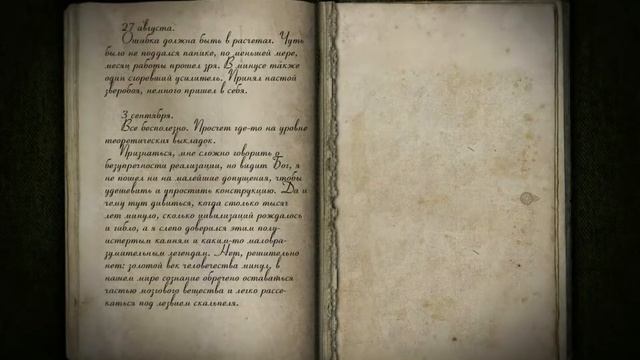 27 августа.
Ошибка должна быть в расчетах. Чуть
было не поддался панике, по меньшей мере,
месяц работы прошел зря. В минусе также
один сгоревший усилитель. Принял настой
зверобоя, немного пришел в себя.
3 сентября.
Все бесполезно. Просчет где-то на уровне
теоретических выкладок.
Признаться, мне сложно говорить о
безупречности реализации, но видит Бог, я
не пошел ни на малейшие допущения, чтобы
удешевить и упростить конструкцию. Да и
чему тут дивиться, когда столько тысяч
лет минуло, сколько цивилизаций рождалось
и гибло, а я слепо доверился этим полу-
истертым камням и каким-то маловра-
зумительным легендам. Нет, решительно
нет: золотой век человечества минул, в
нашем мире сознание обречено оставаться
частью мозгового вещества и легко рассе-
каться под лезвием скальпеля.